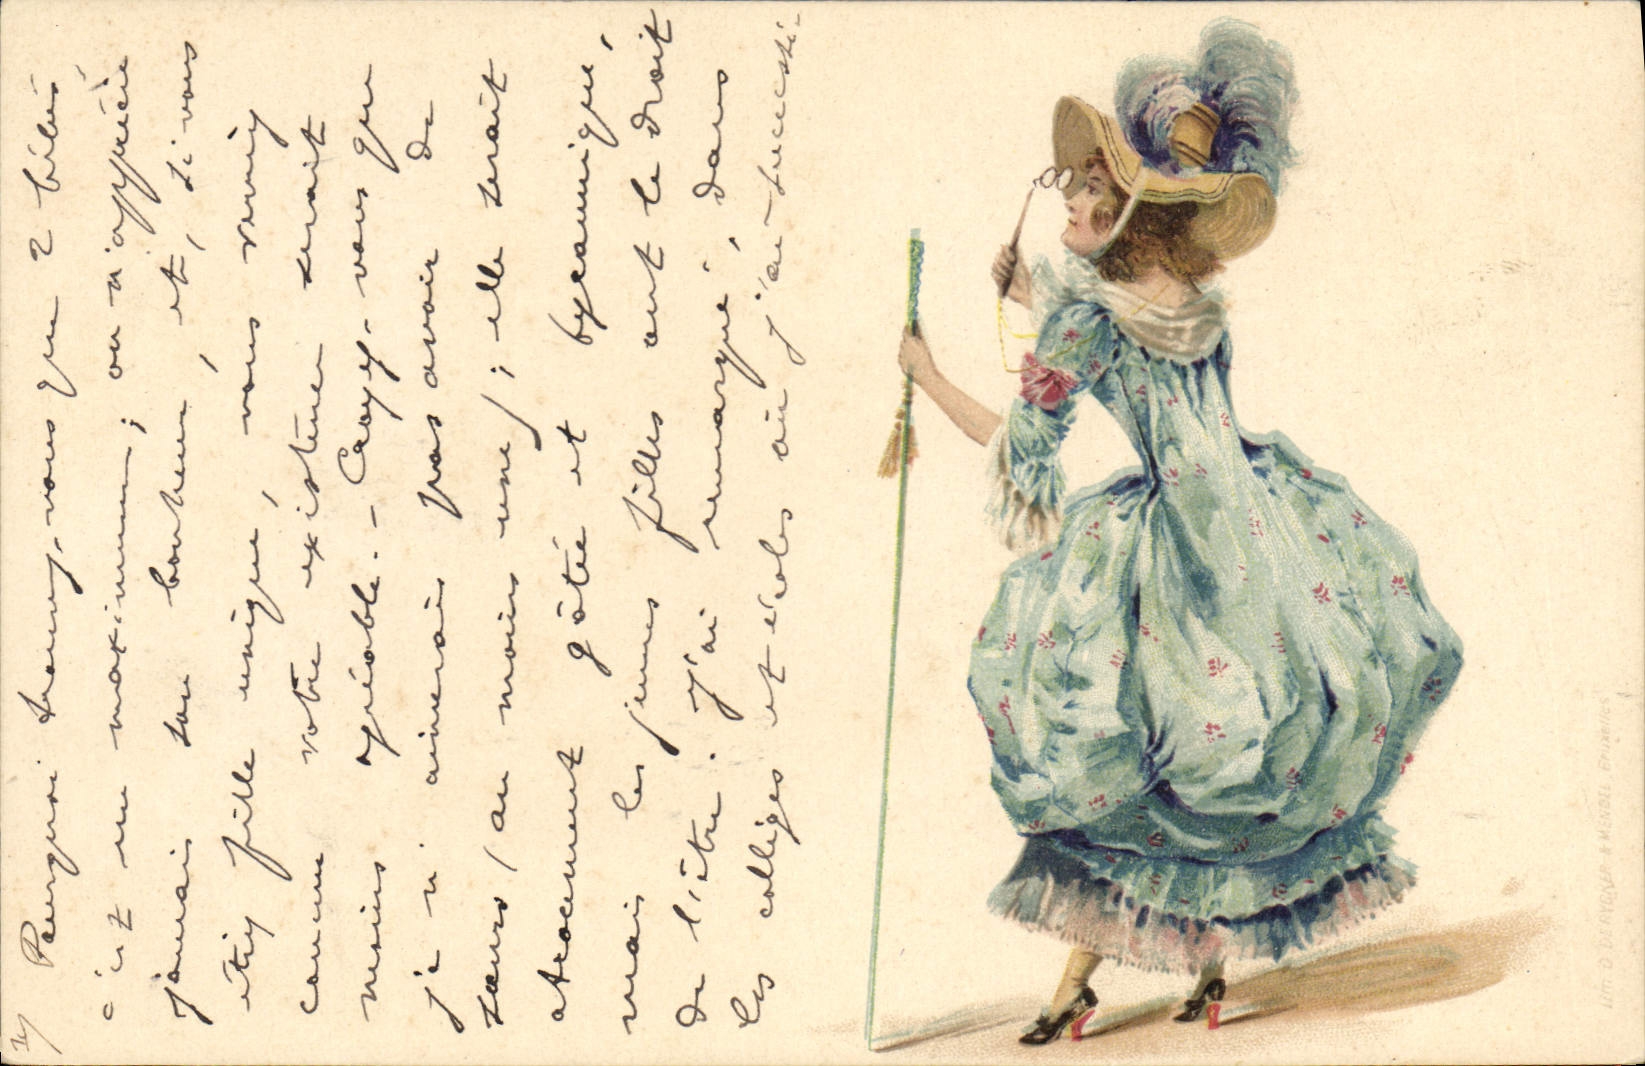 1/ Pourquoi trouvez-vous que 2 bébés
c'est un maximum; on n'apprécie
jamais son bonheur, et, si vous
étiez fille unique, vous verriez
comme votre existence serait
moins agréable. - Croyez-vous que
je n'aimerais pas avoir de
sœurs (au moins une); elle serait
atrocement gâtée et tyrannique,
mais les jeunes filles ont le droit
de l'être. J'ai remarqué, dans
les collèges et écoles où j'ai successi-